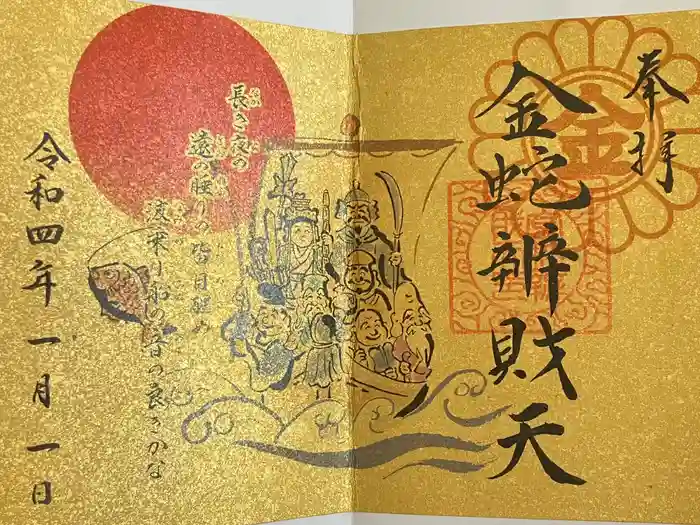 奉拝
金
金蛇辨財天
長き夜の
遠の睡りの皆目醒め
波乗り船の音の良きかな
令和四年一月一日